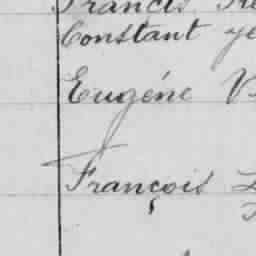 Francis
Constant
Eugéne
François